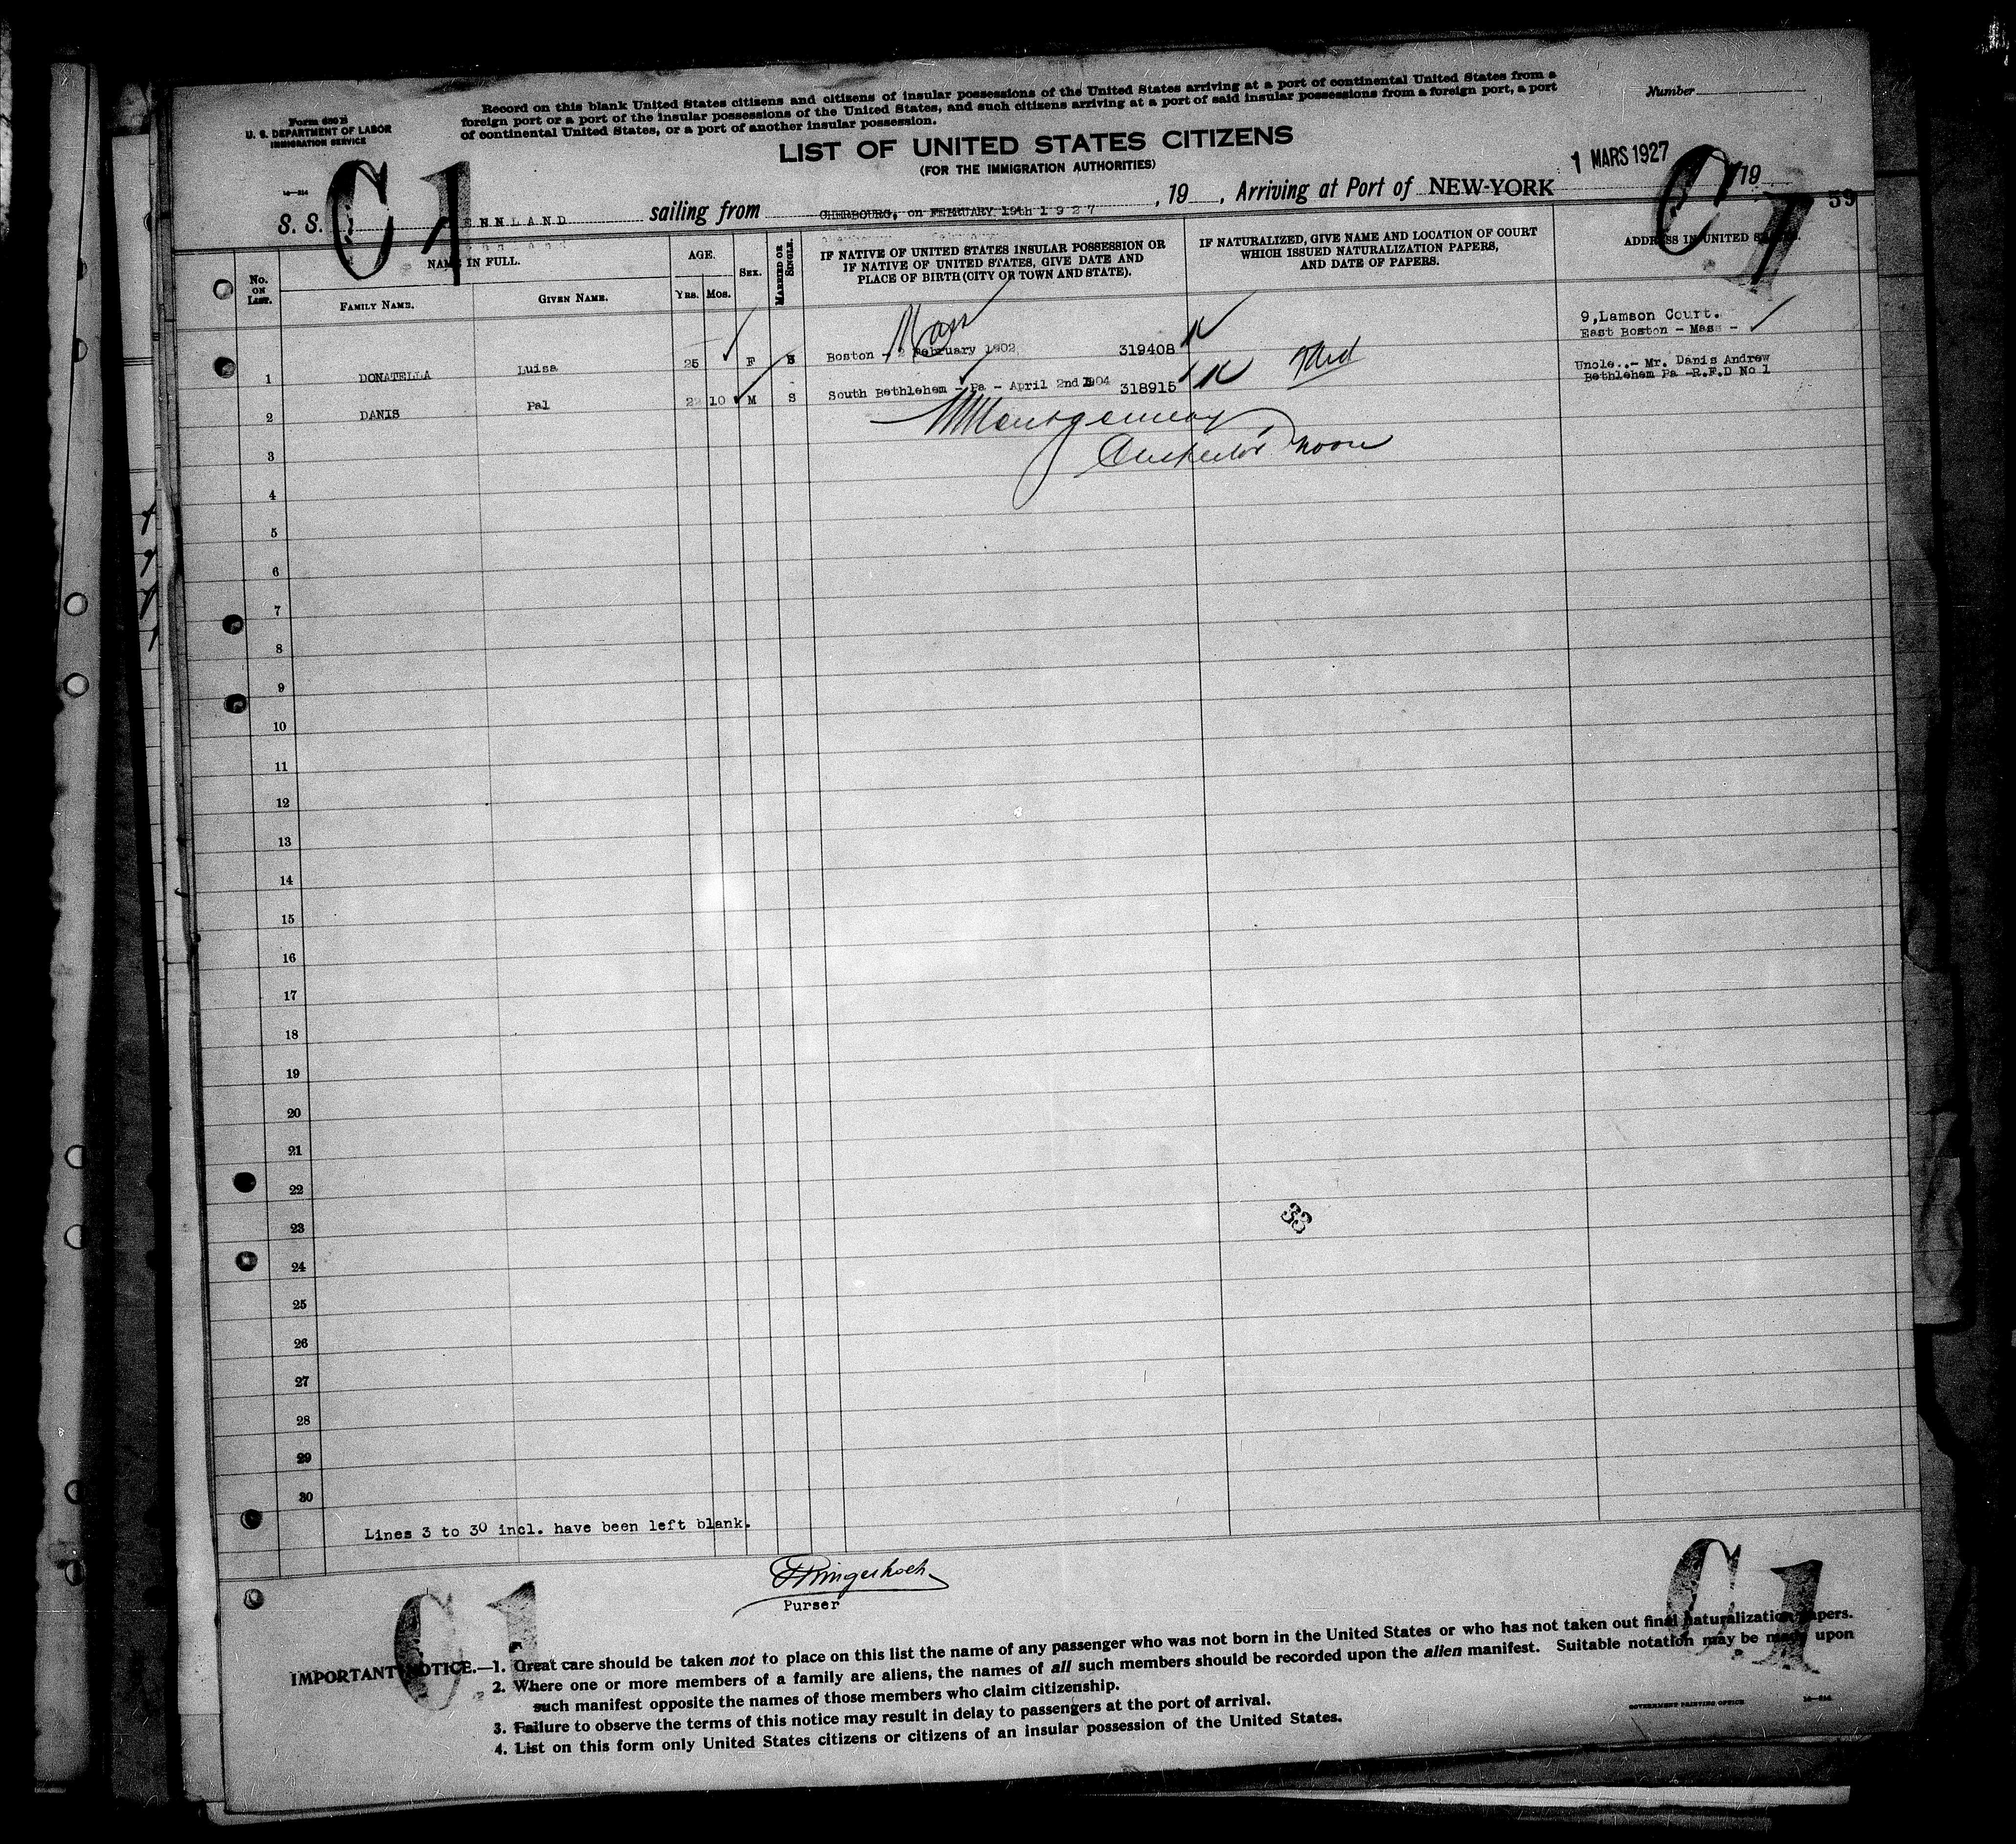 Form 630 B
U. S. DEPARTMENT OF LABOR
IMMIGRATION SERVICE
Record on this blank United States citizens and citizens of insular possessions of the United States arriving at a port of continental United States from a
foreign port or a port of the insular possessions of the United States, and such citizens arriving at a port of said insular possessions from a foreign port, a port
of continental United States, or a port of another insular possession.
Number
LIST OF UNITED STATES CITIZENS
(FOR THE IMMIGRATION AUTHORITIES)
C1
1 MARS 1927
S. S. ENNLAND sailing from CHERBOURG, on FEBRUARY 19th 1927, 19 , Arriving at Port of NEW-YORK 19
C1
59
No. ON LIST.
NAME IN FULL.
FAMILY NAME.
GIVEN NAME.
AGE.
YRS. MOS.
SEX.
MARRIED OR SINGLE.
IF NATIVE OF UNITED STATES INSULAR POSSESSION OR
IF NATIVE OF UNITED STATES, GIVE DATE AND
PLACE OF BIRTH (CITY OR TOWN AND STATE).
IF NATURALIZED, GIVE NAME AND LOCATION OF COURT
WHICH ISSUED NATURALIZATION PAPERS,
AND DATE OF PAPERS.
ADDRESS IN UNITED STATES.
Mass
9,Lamson Court.
East Boston - Mass -
1 DONATELLA Luisa 25 F S Boston - 2 February 1902 319408
Third
Uncle..- Mr. Danis Andrew
Bethlehem Pa -R.F.D No 1
2 DANIS Pal 22 10 M S South Bethlehem - Pa - April 2nd 1904 318915
Montgomery
Inspector Moore
3
4
5
6
7
8
9
10
11
12
13
14
15
16
17
18
19
20
21
22
23
24
25
26
27
28
29
30
53
Lines 3 to 30 incl. have been left blank.
Purser
C1
C1
IMPORTANT NOTICE.—1. Great care should be taken not to place on this list the name of any passenger who was not born in the United States or who has not taken out final naturalization papers.
2. Where one or more members of a family are aliens, the names of all such members should be recorded upon the alien manifest. Suitable notation may be made upon
such manifest opposite the names of those members who claim citizenship.
3. Failure to observe the terms of this notice may result in delay to passengers at the port of arrival.
4. List on this form only United States citizens or citizens of an insular possession of the United States.
GOVERNMENT PRINTING OFFICE